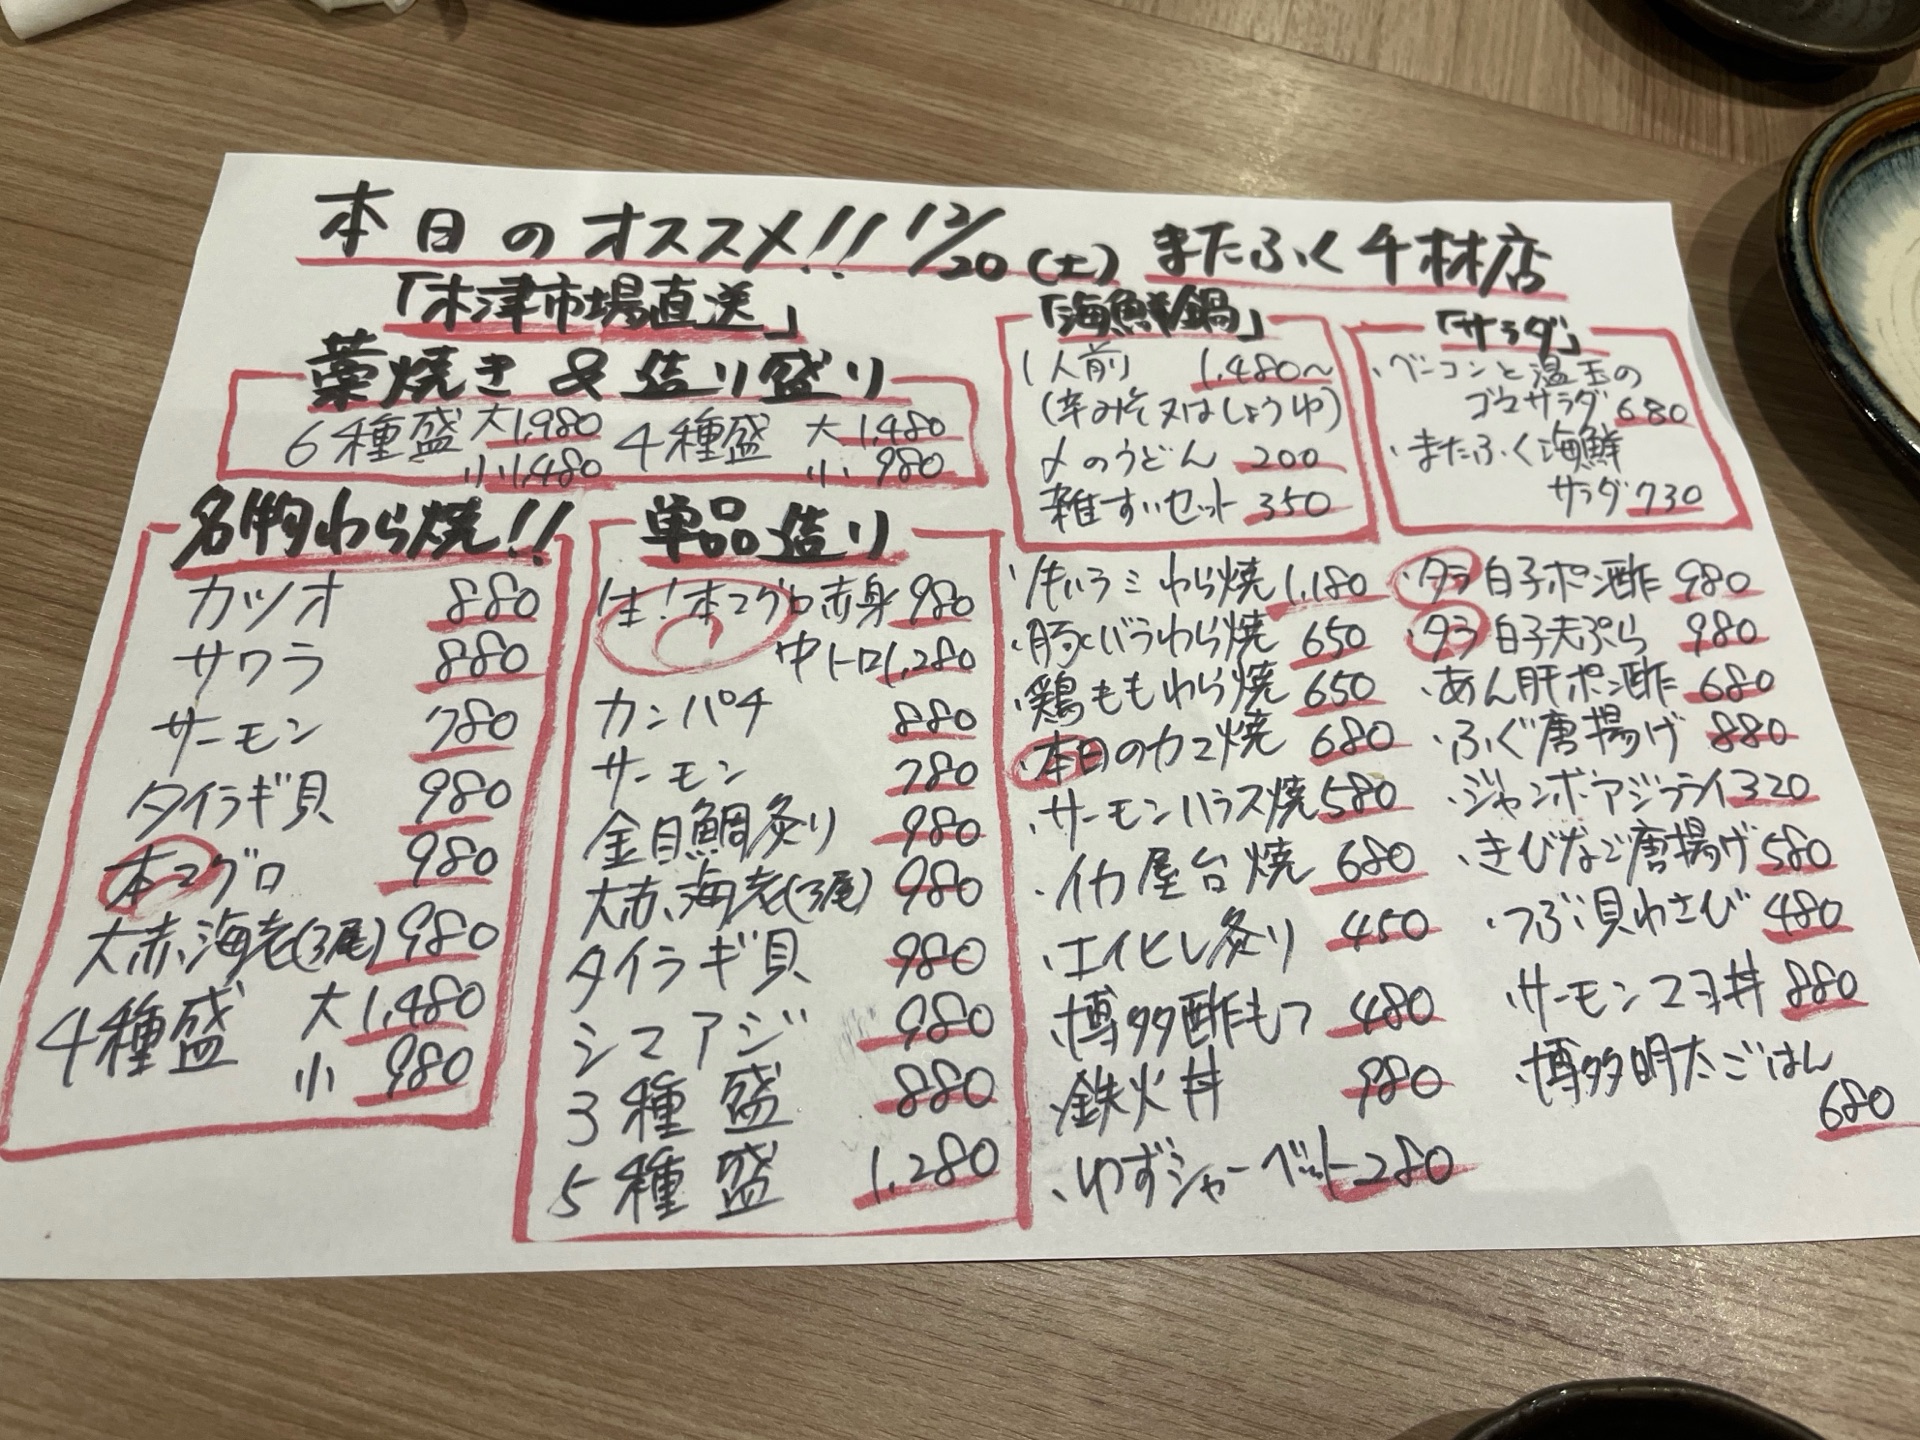 本日のオススメ!! 12/20(土) またふく千林店
「木津市場直送」
藁焼き&造り盛り
6種盛 大1,980 4種盛 大1,480
小1,480 小 980
名物わら焼!!
カツオ 880
サワラ 880
サーモン 780
タイラギ貝 980
本マグロ 980
大赤海老(3尾) 980
4種盛 大1,480
小 980
単品造り
生!本マグロ赤身 980
中トロ1,280
カンパチ 880
サーモン 780
金目鯛炙り 980
大赤海老(3尾) 980
タイラギ貝 980
シマアジ 980
3種盛 880
5種盛 1,280
「海鮮鍋」
1人前 1,480〜
(辛みそ又はしょうゆ)
〆のうどん 200
雑すいセット 350
「サラダ」
・ベーコンと温玉の
ゴマサラダ 680
・またふく海鮮
サラダ 730
・牛いちミわら焼 1,180
・豚バラわら焼 650
・鶏ももわら焼 650
・本日のカマ焼 680
・サーモンハラス焼 580
・イカ屋台焼 680
・エイヒレ炙り 450
・博多酢もつ 480
・鉄火丼 980
・ゆずシャーベット 280
・タラ白子ポン酢 980
・タラ白子天ぷら 980
・あん肝ポン酢 680
・ふぐ唐揚げ 880
・ジャンボアジフライ 320
・きびなご唐揚げ 580
・つぶ貝わさび 480
・サーモンマヨ丼 880
・博多明太ごはん
680